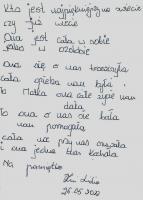 Kto jest najpiękniejszy na świecie
czy już wiecie
Ona jest cała w sobie
jakby w ozdobie
Ona się o nas troszczyła
cała opieka nam była
To Matka ona całe życie nam
dała
To ona o nas się bała
nam pomagała
cała nas przy nas
i ona jedna nas kochała
Na pamiątkę
26.05.2020